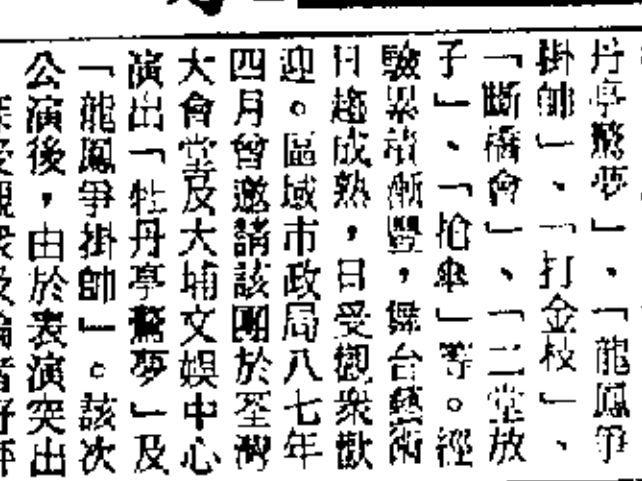 丹亭驚夢」、「龍鳳爭
掛帥」、「打金枝」、
「斷橋會」、「二堂放
子」、「搶傘」等。經
驗累積漸豐，舞台藝術
日趨成熟，日受觀衆歡
迎。區域市政局八七年
四月曾邀請該團於荃灣
大會堂及大埔文娛中心
演出「牡丹亭驚夢」及
「龍鳳爭掛帥」。該次
公演後，由於表演突出